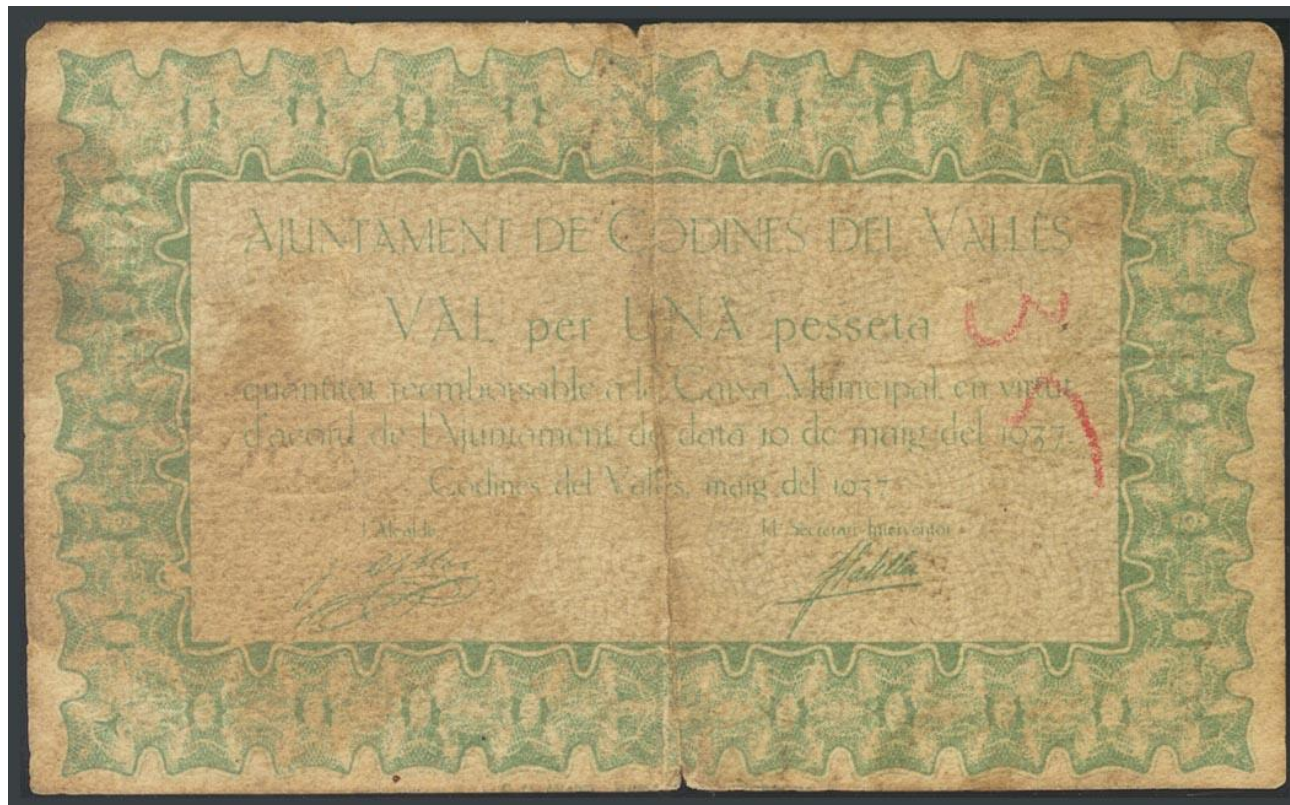 AJUNTAMENT DE CODINES DEL VALLÈS
VAL per UNA pesseta
quantitat reemborsable a la Caixa Municipal en virtut
d'acord de l'Ajuntament de data 10 de maig del 1937.
Codines del Vallès, maig del 1937
L'Alcalde
El Secretari-Interventor